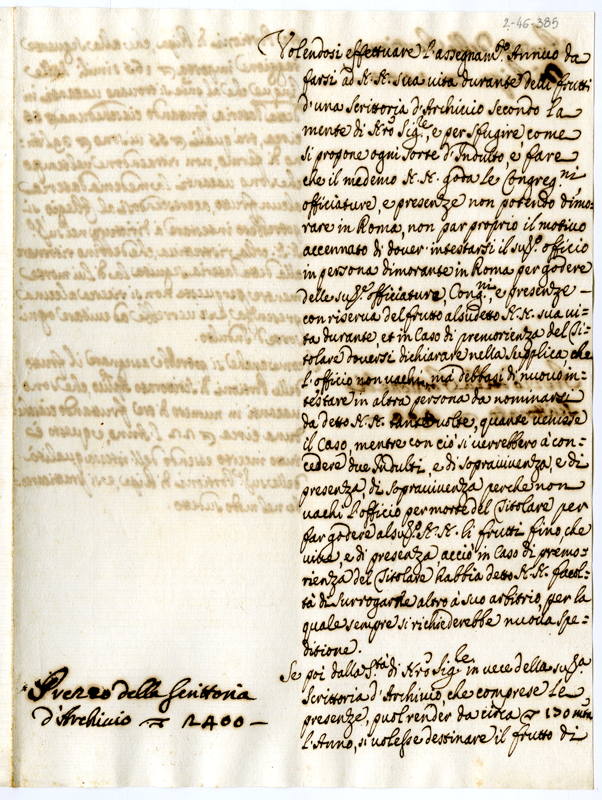 2-46-385
Volendosi effettuare l'assegnam.to Annuo da
farsi ad N. N. sua vita durante delli frutti
d'una Scrittoria d'Archivio secondo la
mente di Nro Sig.re, e per sfugire, come
si propone ogni sorte d'Indulto, è fare
che il medemo N. N. goda le Congreg.ni,
officiature, e presenze non potendo dimo=
rare in Roma, non par proprio il motivo
accennato di dover intestarsi il sud.o officio
in persona dimorante in Roma per godere
delle sud.e officiature, Cong.ni, e presenze –
con riserva del frutto al sudetto N. N. sua vi=
ta durante, et in Caso di premorienza del Ti=
tolare doversi dichiarare nella supplica che
l'officio non vachi, mà debbasi di nuovo in=
testare in altra persona da nominarsi
da detto N. N. tante volte, quante venisse
il Caso, mentre con ciò si verrebbero à con=
cedere due Indulti, e di sopravivenza, e di
presenza, di sopravivenza perche non
vachi l'officio per morte del Titolare per
far godere al sud.o N. N. li frutti fino che
vive, e di presenza, acciò in Caso di premo=
rienza del Titolare habbia detto N. N. facol=
tà di surrogarne altro à suo arbitrio, per la
quale sempre si richiederebbe nuova spe=
ditione.
Se poi dalla S.tà di Nro Sig.re in vece della sud.a
Scrittoria d'Archivio, che comprese le
presenze, puol render da circa 130 mta
l'Anno, si volesse destinare il frutto di
Prezzo della Scrittoria
d'Archivio 2400 –